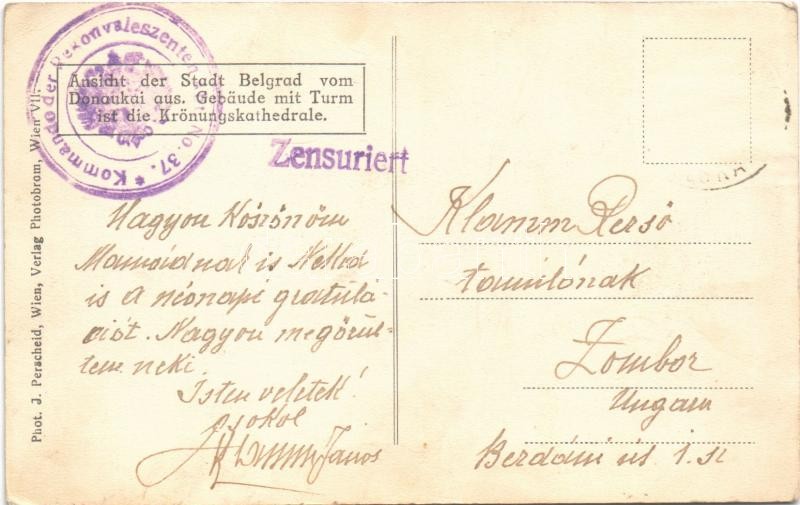 Kommando der Rekonvaleszenten No. 37. *
Ansicht der Stadt Belgrad vom
Donaukai aus. Gebäude mit Turm
ist die Krönungskathedrale.
Zensuriert
Phot. J. Perscheid, Wien, Verlag Photobrom, Wien VII.
Nagyon Köszönöm
Mamáidnak is Neked
is a névnapi gratulá-
ciót. Nagyon megörül-
tem neki.
Isten veletek!
Csokol
Klamm János
Klamm Rezső
tanulónak
Zombor
Ungarn